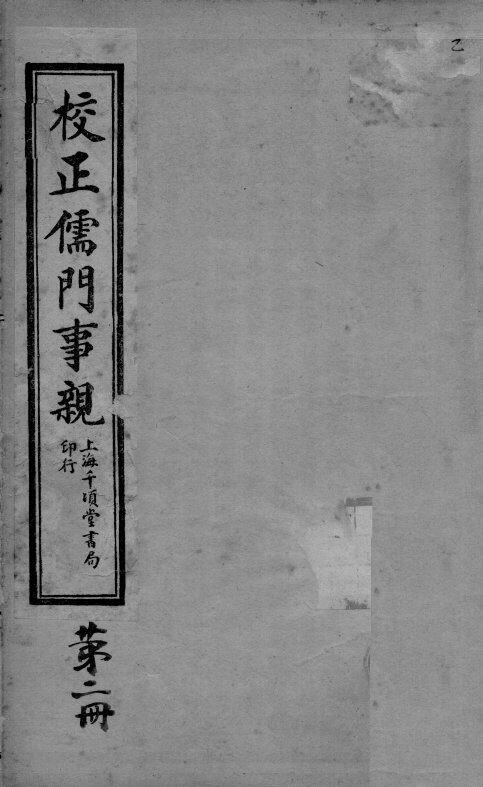 乙
校正儒門事親
上海千頃堂書局
印行
第二冊